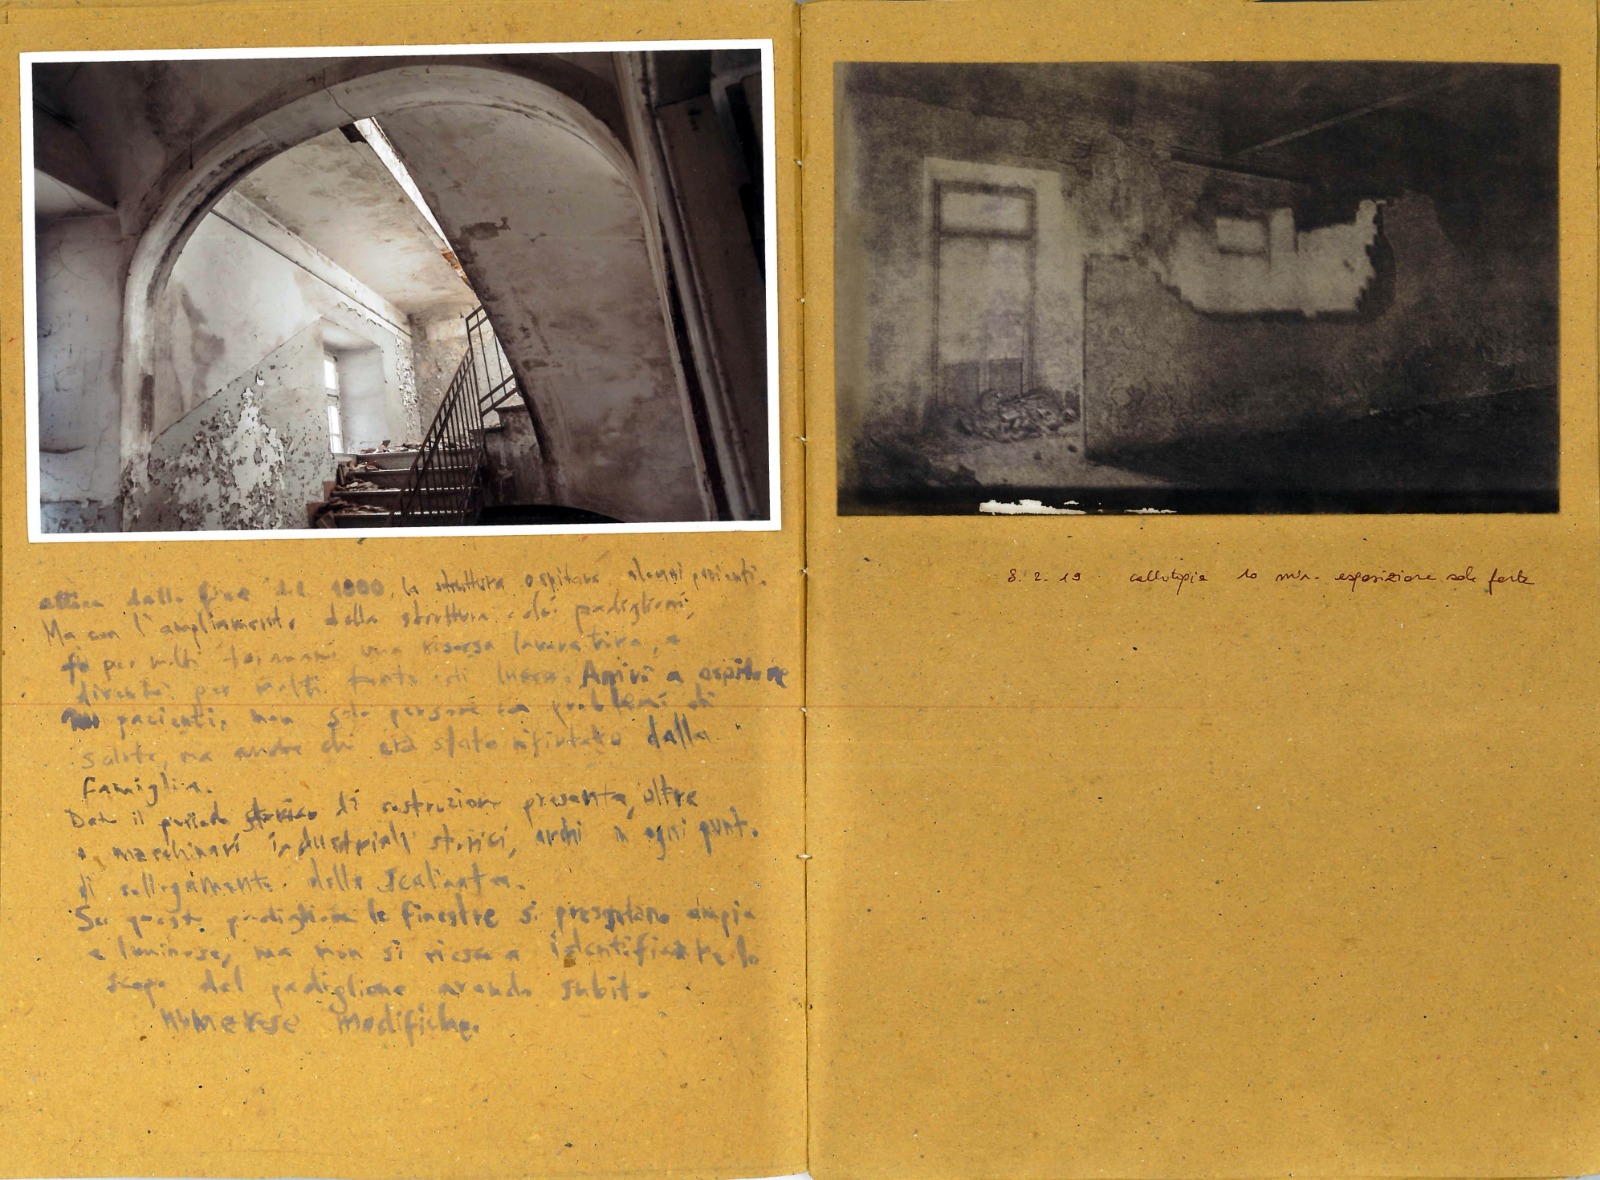 attiva dalla fine del 1800, la struttura ospitava alcuni pazienti.
Ma con l'ampliamento della struttura e dei padiglioni,
fù per molti una risorsa lavorativa, e
diventò per molti fonte di lucro. Arrivò a ospitare
pazienti, non solo persone con problemi di
salute, ma anche chi era stato rifiutato dalla
famiglia.
Dato il periodo storico di costruzione presenta, oltre
a macchinari industriali storici, archi in ogni punto
di collegamento della scalinata.
In questo padiglione le finestre si presentano ampie
e luminose, ma non si riesce a identificare lo
scopo del padiglione avendo subito
numerose modifiche.
8.2.19 callotipia 10 min. esposizione sole forte